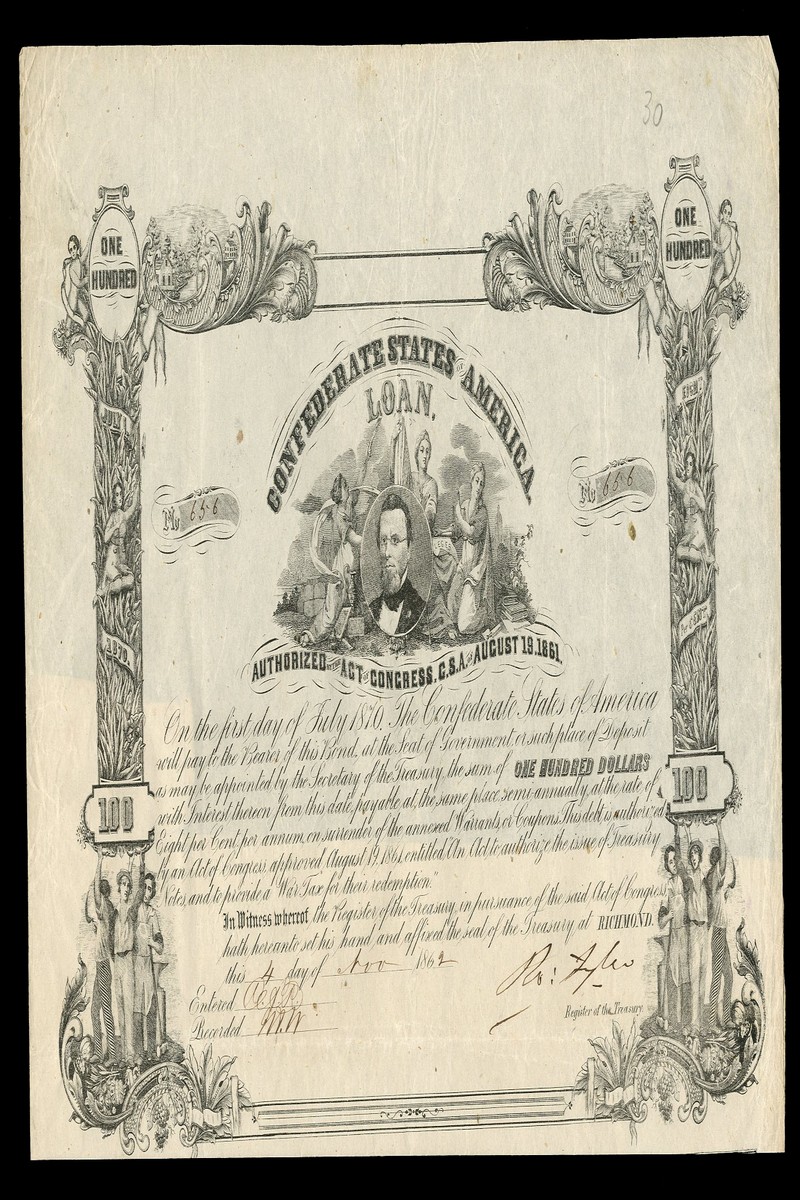 30
ONE HUNDRED
ONE HUNDRED
CONFEDERATE STATES OF AMERICA.
LOAN.
JULY 1
EIGHT
No 656
No 656
1870.
PR CENT
AUTHORIZED BY ACT OF CONGRESS, C.S.A. OF AUGUST 19, 1861.
On the first day of July 1870, The Confederate States of America
will pay to the Bearer of this Bond, at the Seat of Government, or such place of Deposit
as may be appointed by the Secretary of the Treasury, the sum of ONE HUNDRED DOLLARS
with Interest thereon from this date, payable at the same place semi-annually, at the rate of
Eight per Cent. per annum, on surrender of the annexed Warrants, or Coupons. This debt is authorized
by an Act of Congress, approved August 19, 1861, entitled "An Act to authorize the issue of Treasury
Notes, and to provide a War Tax for their redemption."
100
100
In Witness whereof the Register of the Treasury, in pursuance of the said Act of Congress
hath hereunto set his hand and affixed the seal of the Treasury at RICHMOND.
this 4 day of Nov 1862
Ro: Tyler
Entered
Recorded
Register of the Treasury.